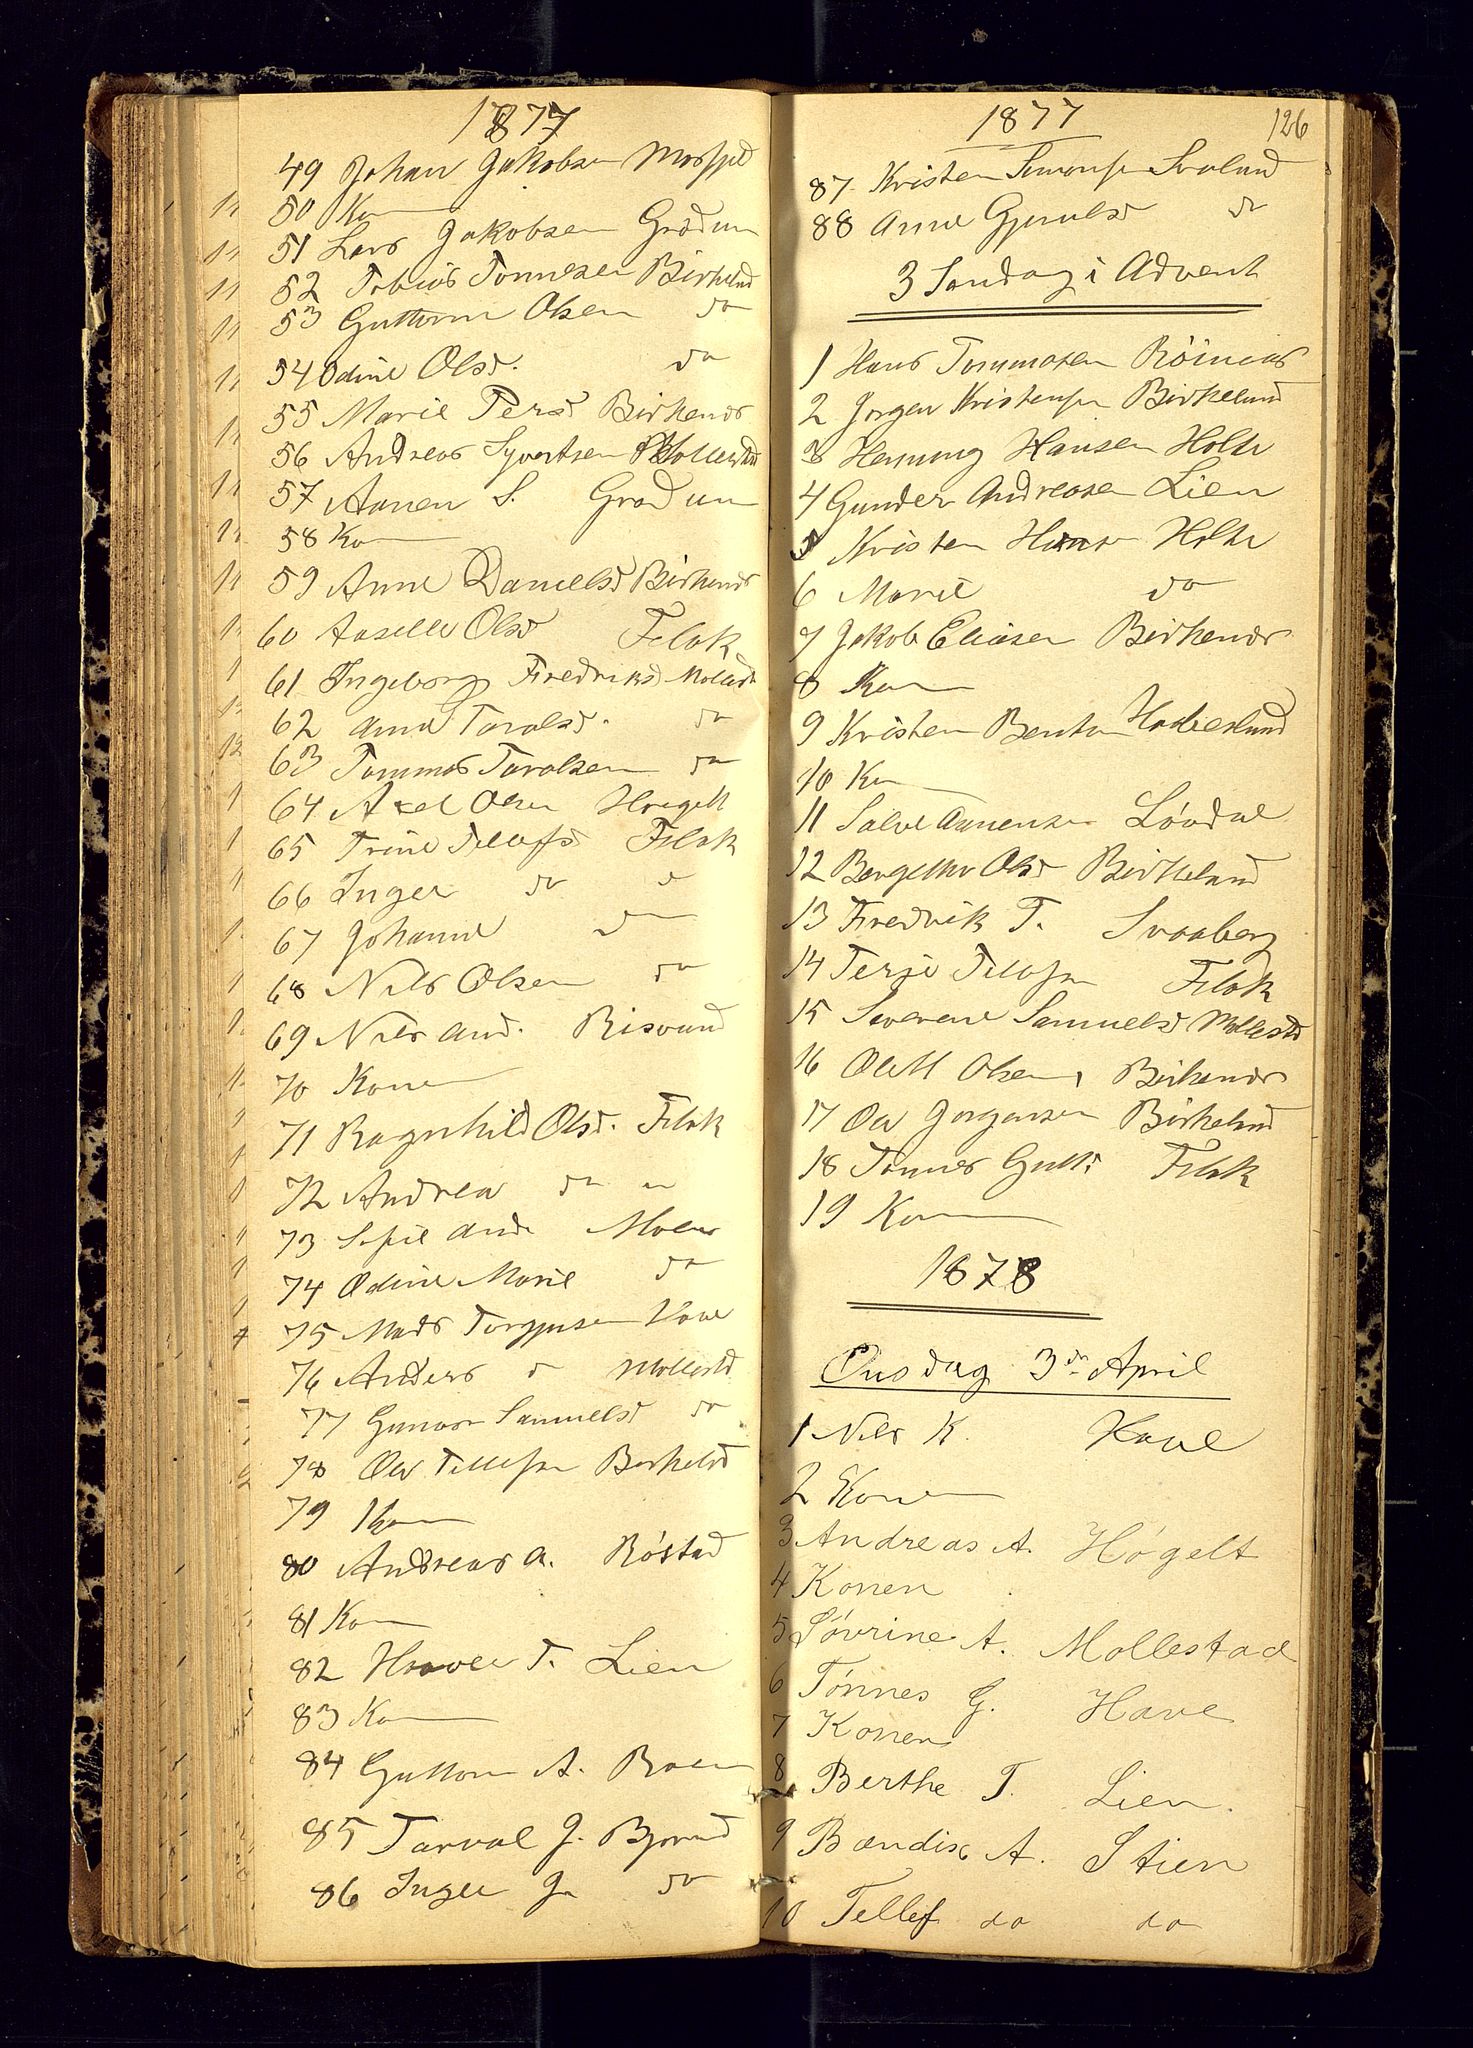 1877
49 Johan Jakobsen Mosfjel
50 Kon
51 Lars Jakobsen Grødum
52 Tobias Tønnesen Birkelnd
53 Guttorm Olsen do
54 Odine Olsd. do
55 Marie Persd Birkenes
56 Andreas Syvertsen Mollestad
57 Aanen S. Grødum
58 Kon
59 Anne Danielsd Birkenes
60 Aaselle Olsd Flak
61 Ingeborg Fredriksd Mollestd
62 Anne Taralsd. do
63 Tommas Taralsen do
64 Axel Olsen Høigelt
65 Trine Tellefsd Flak
66 Inger do d
67 Johanne do
68 Nils Olsen do
69 Nils And. Risvand
70 Konen
71 Ragnhild Olsd. Flak
72 Andrea do
73 Sofie And Moen
74 Odine Marie do
75 Mads Torgjusen Have
76 Anders d Mollestd
77 Gunvor Samuelsd do
78 Ole Tellefsen Berkelnd
79 Kon
80 Andreas A. Røstad
81 Kon
82 Haavel T. Lien
83 Kon
84 Guttorm A. Roen
85 Tarval J. Bjorvd
86 Inger J do
1877
126
87 Kristen Simonsen Svaland
88 Anne Gjeruls do
3 Søndag i Advent
1 Hans Tommasen Røinaas
2 Jørgen Kristensen Birkeland
3 Henning Hansen Holte
4 Gunder Andreasen Lien
5 Kristen Hansen Holte
6 Marie do
7 Jakob Eliasen Birkenes
8 Kon
9 Kristen Bentsen
10 Kon
11 Salve Aanensen Løvdal
12 Bergethe Olsd Birkeland
13 Fredrik T. Svaaberg
14 Terje Tellefsen Flak
15 Severene Samuelsd Mollestd
16 Olsen Birkenes
17 Ole Jørgensen Birkelnd
18 Tønnes Gutt. Flak
19 Kon
1878
Onsdag 3die April
1 Nils K. Have
2 Konen
3 Andreas A. Høgelt
4 Konen
5 Søvrine A. Mollestad
6 Tønnes G. Have
7 Konen
8 Berthe T. Lien.
9 Bændix A. Stien
10 Tellef do do